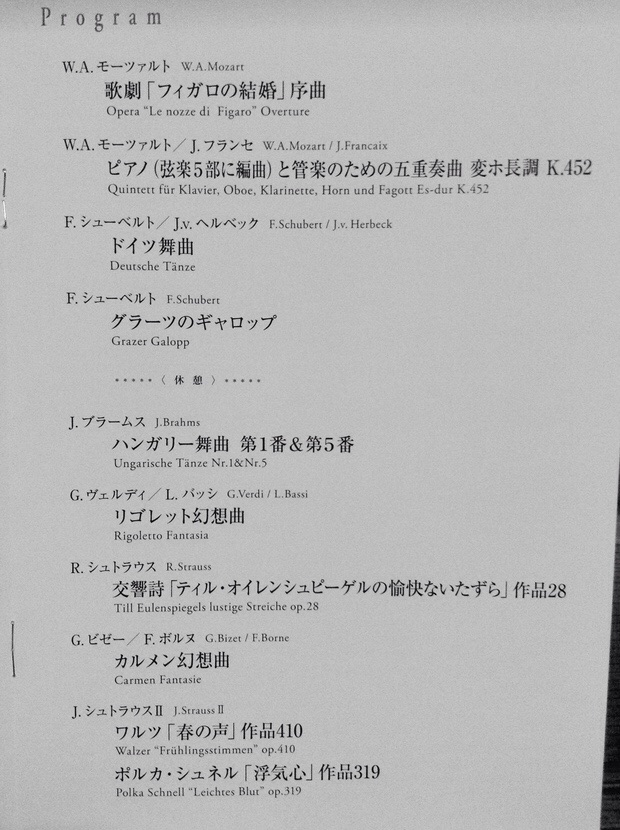 Program
W.A.モーツァルト W.A.Mozart
歌劇「フィガロの結婚」序曲
Opera “Le nozze di Figaro” Overture
W.A.モーツァルト／J.フランセ W.A.Mozart / J.Francaix
ピアノ(弦楽5部に編曲)と管楽のための五重奏曲 変ホ長調 K.452
Quintett für Klavier, Oboe, Klarinette, Horn und Fagott Es-dur K.452
F.シューベルト／J.v.ヘルベック F.Schubert / J.v.Herbeck
ドイツ舞曲
Deutsche Tänze
F.シューベルト F.Schubert
グラーツのギャロップ
Grazer Galopp
*****〈 休 憩 〉*****
J.ブラームス J.Brahms
ハンガリー舞曲 第1番＆第5番
Ungarische Tänze Nr.1&Nr.5
G.ヴェルディ／L.バッシ G.Verdi / L.Bassi
リゴレット幻想曲
Rigoletto Fantasia
R.シュトラウス R.Strauss
交響詩「ティル・オイレンシュピーゲルの愉快ないたずら」作品28
Till Eulenspiegels lustige Streiche op.28
G.ビゼー／F.ボルヌ G.Bizet / F.Borne
カルメン幻想曲
Carmen Fantasie
J.シュトラウスⅡ J.StraussⅡ
ワルツ「春の声」作品410
Walzer “Frühlingsstimmen” op.410
ポルカ・シュネル「浮気心」作品319
Polka Schnell “Leichtes Blut” op.319